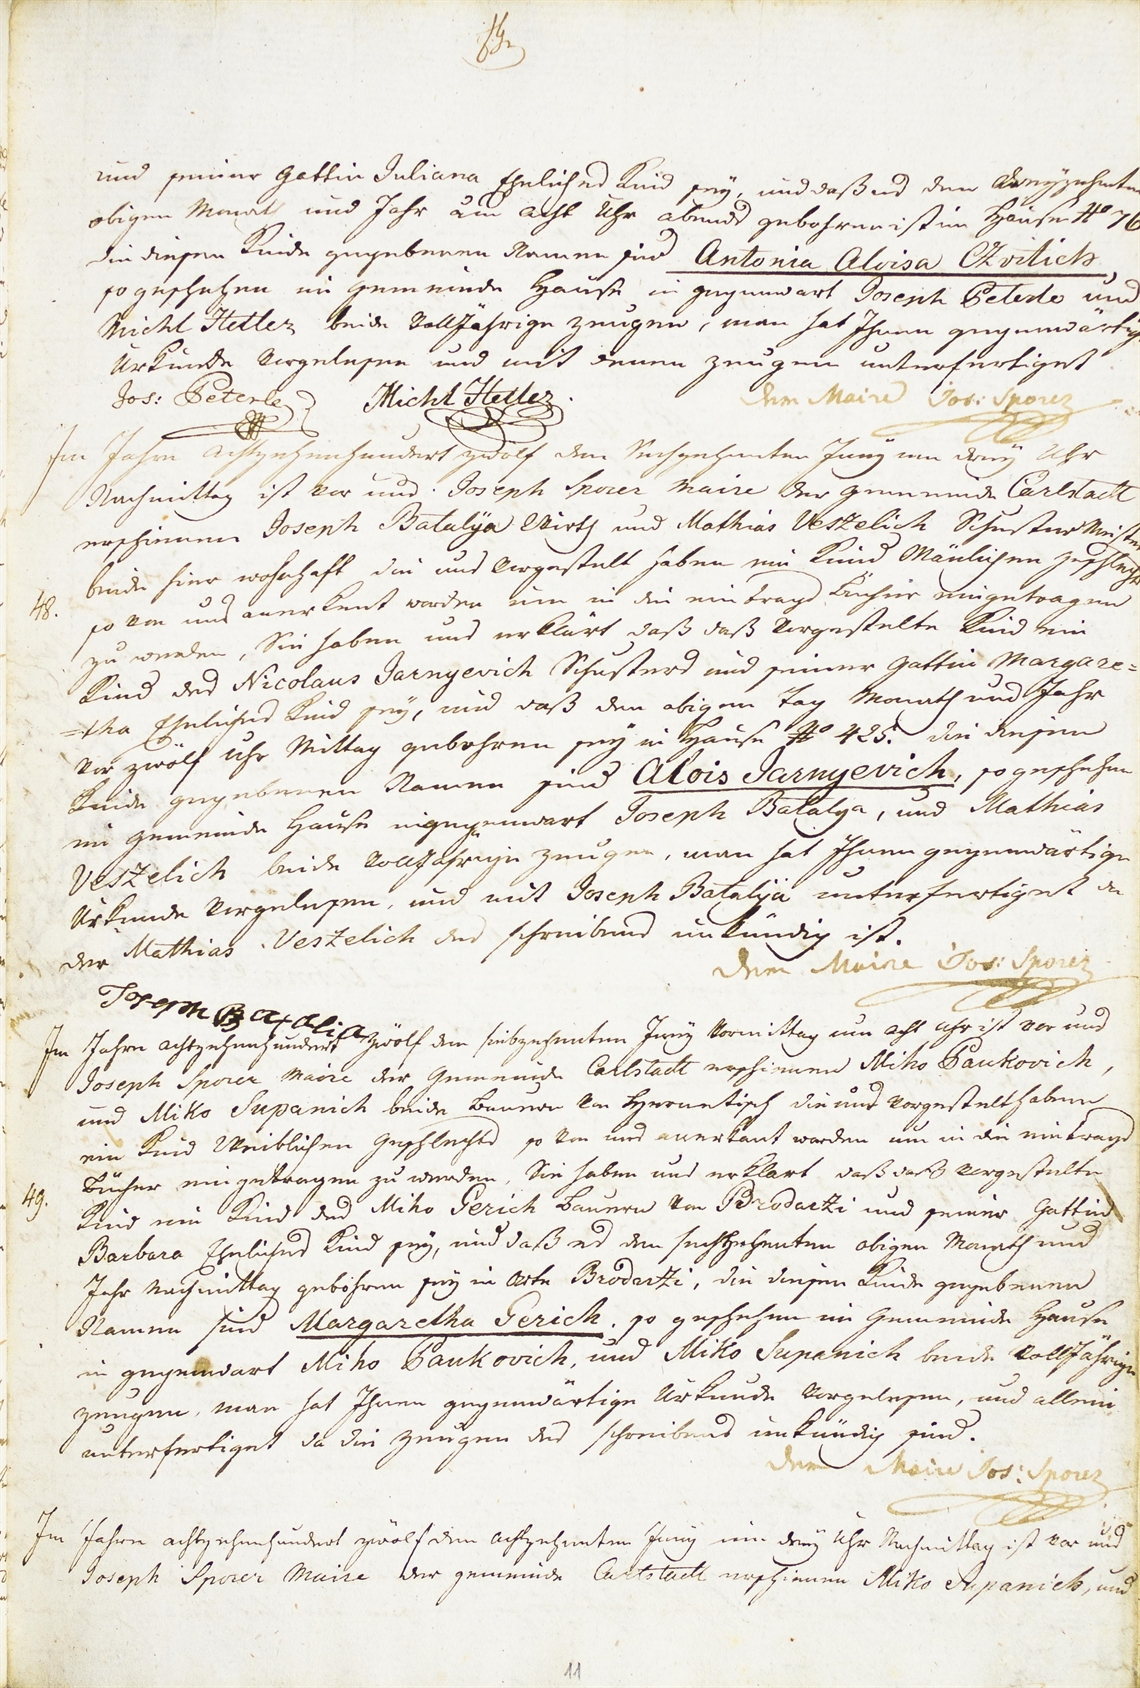 und seiner Gattin Juliana Ehelichs Kind sey, und daß es den dreyzehnten
obigen Monat und Jahr um acht Uhr abends gebohren ist im Hause No 76
die diesem Kinde gegebenen Namen sind Antonia Aloisa Czvitich
so geschehen im Gemeinde Hause in gegenwart Joseph Peterle und
Michl Hetler beide Volljährige Zeugen, man hat Ihnen gegenwärtige
Urkunde Vorgelesen und mit denen Zeugen unterfertiget
Jos: Peterle Michl Hetler. Der Maire Jos: Sporer
Im Jahre achtzehenhundert zwölf den Sechzehnten Juny um drey Uhr
Nachmittag ist vor uns Joseph Sporer Maire der Gemeinde Carlstadt
erschienen Joseph Batalÿa Wirth und Mathias Veszelich Schuster Meister
beide hier wohnhaft die uns Vorgestelt haben ein Kind Mänlichen Geschlechts
48. so von uns anerkent worden um in die eintrags Bücher eingetragen
zu werden, Sie haben uns erklärt daß daß Vorgestelte Kind ein
Kind des Nicolaus Jarnyevich Schusters und seiner Gattin Margare=
=tha Ehelichs Kind sey, und daß den obigen Tag Monath und Jahr
vor zwölf Uhr Mittag gebohren sey in Hause No 425. die diesem
Kinde gegebenen Namen sind Alois Jarnyevich, so geschehen
im Gemeinde Hause in gegenwart Joseph Batalya, und Mathias
Veszelich beide Volljährige Zeugen, man hat Ihnen gegenwärtige
Urkunde Vorgelesen, und mit Joseph Batalÿa unterfertiget da
der Mathias Veszelich des schreibens unkündig ist.
Der Maire Jos: Sporer
Joseph Batalia
Im Jahre achtzehenhundert zwölf den siebzehnten Juny Vormittag um acht Uhr ist vor uns
Joseph Sporer Maire der Gemeinde Carlstadt erschienen Miho Paukovich,
und Miko Supanich beide Bauern von die uns Vorgestelt haben
ein Kind Weiblichen Geschlechts so von uns anerkant worden um in die eintrags
Bücher eingetragen zu werden, Sie haben uns erklärt daß daß Vorgestelte
49. Kind ein Kind des Miho Perich Bauern von Brodarzi und seiner Gattin
Barbara Ehelichs Kind sey, und daß es den sechszehenten obigen Monath und
Jahr Nachmittag gebohren sey in Orte Brodarzi, die diesem Kinde gegebenen
Namen sind Margaretha Perich, so geschehen im Gemeinde Hause
in gegenwart Miho Paukovich, und Miko Supanich beide Volljährige
Zeugen, man hat Ihnen gegenwärtige Urkunde Vorgelesen, und allein
unterfertiget da die Zeugen des schreibens unkündig sind.
Der Maire Jos: Sporer
Im Jahre achtzehenhundert zwölf den achtzehenten Juny um drey Uhr Nachmittag ist vor uns
Joseph Sporer Maire der Gemeinde Carlstadt erschienen Miko Supanich, und
11